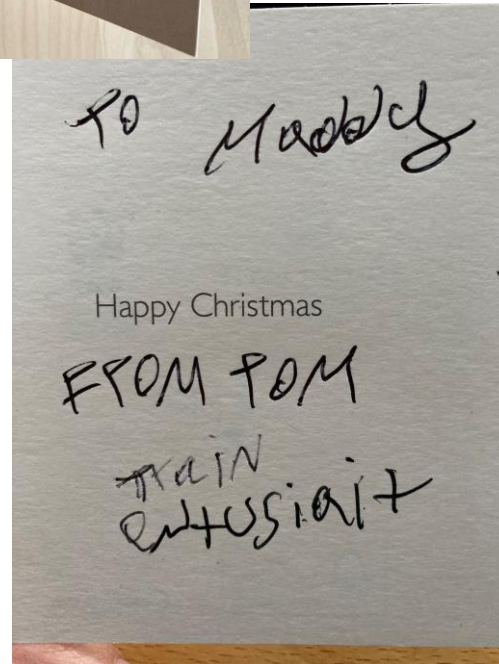 TO Maddy
Happy Christmas
FROM TOM
train
entusiait